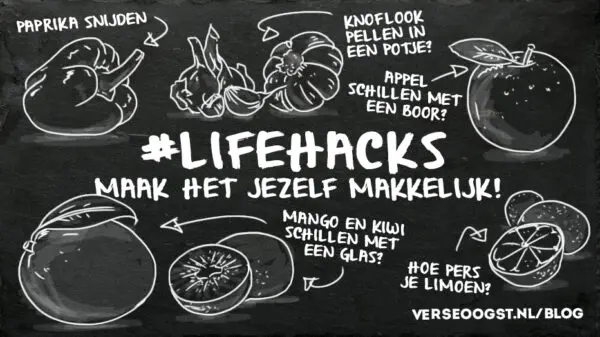 PAPRIKA SNIJDEN
KNOFLOOK
PELLEN IN
EEN POTJE?
APPEL
SCHILLEN MET
EEN BOOR?
#LIFEHACKS
MAAK HET JEZELF MAKKELIJK!
MANGO EN KIWI
SCHILLEN MET
EEN GLAS?
HOE PERS
JE LIMOEN?
VERSEOOGST.NL/BLOG